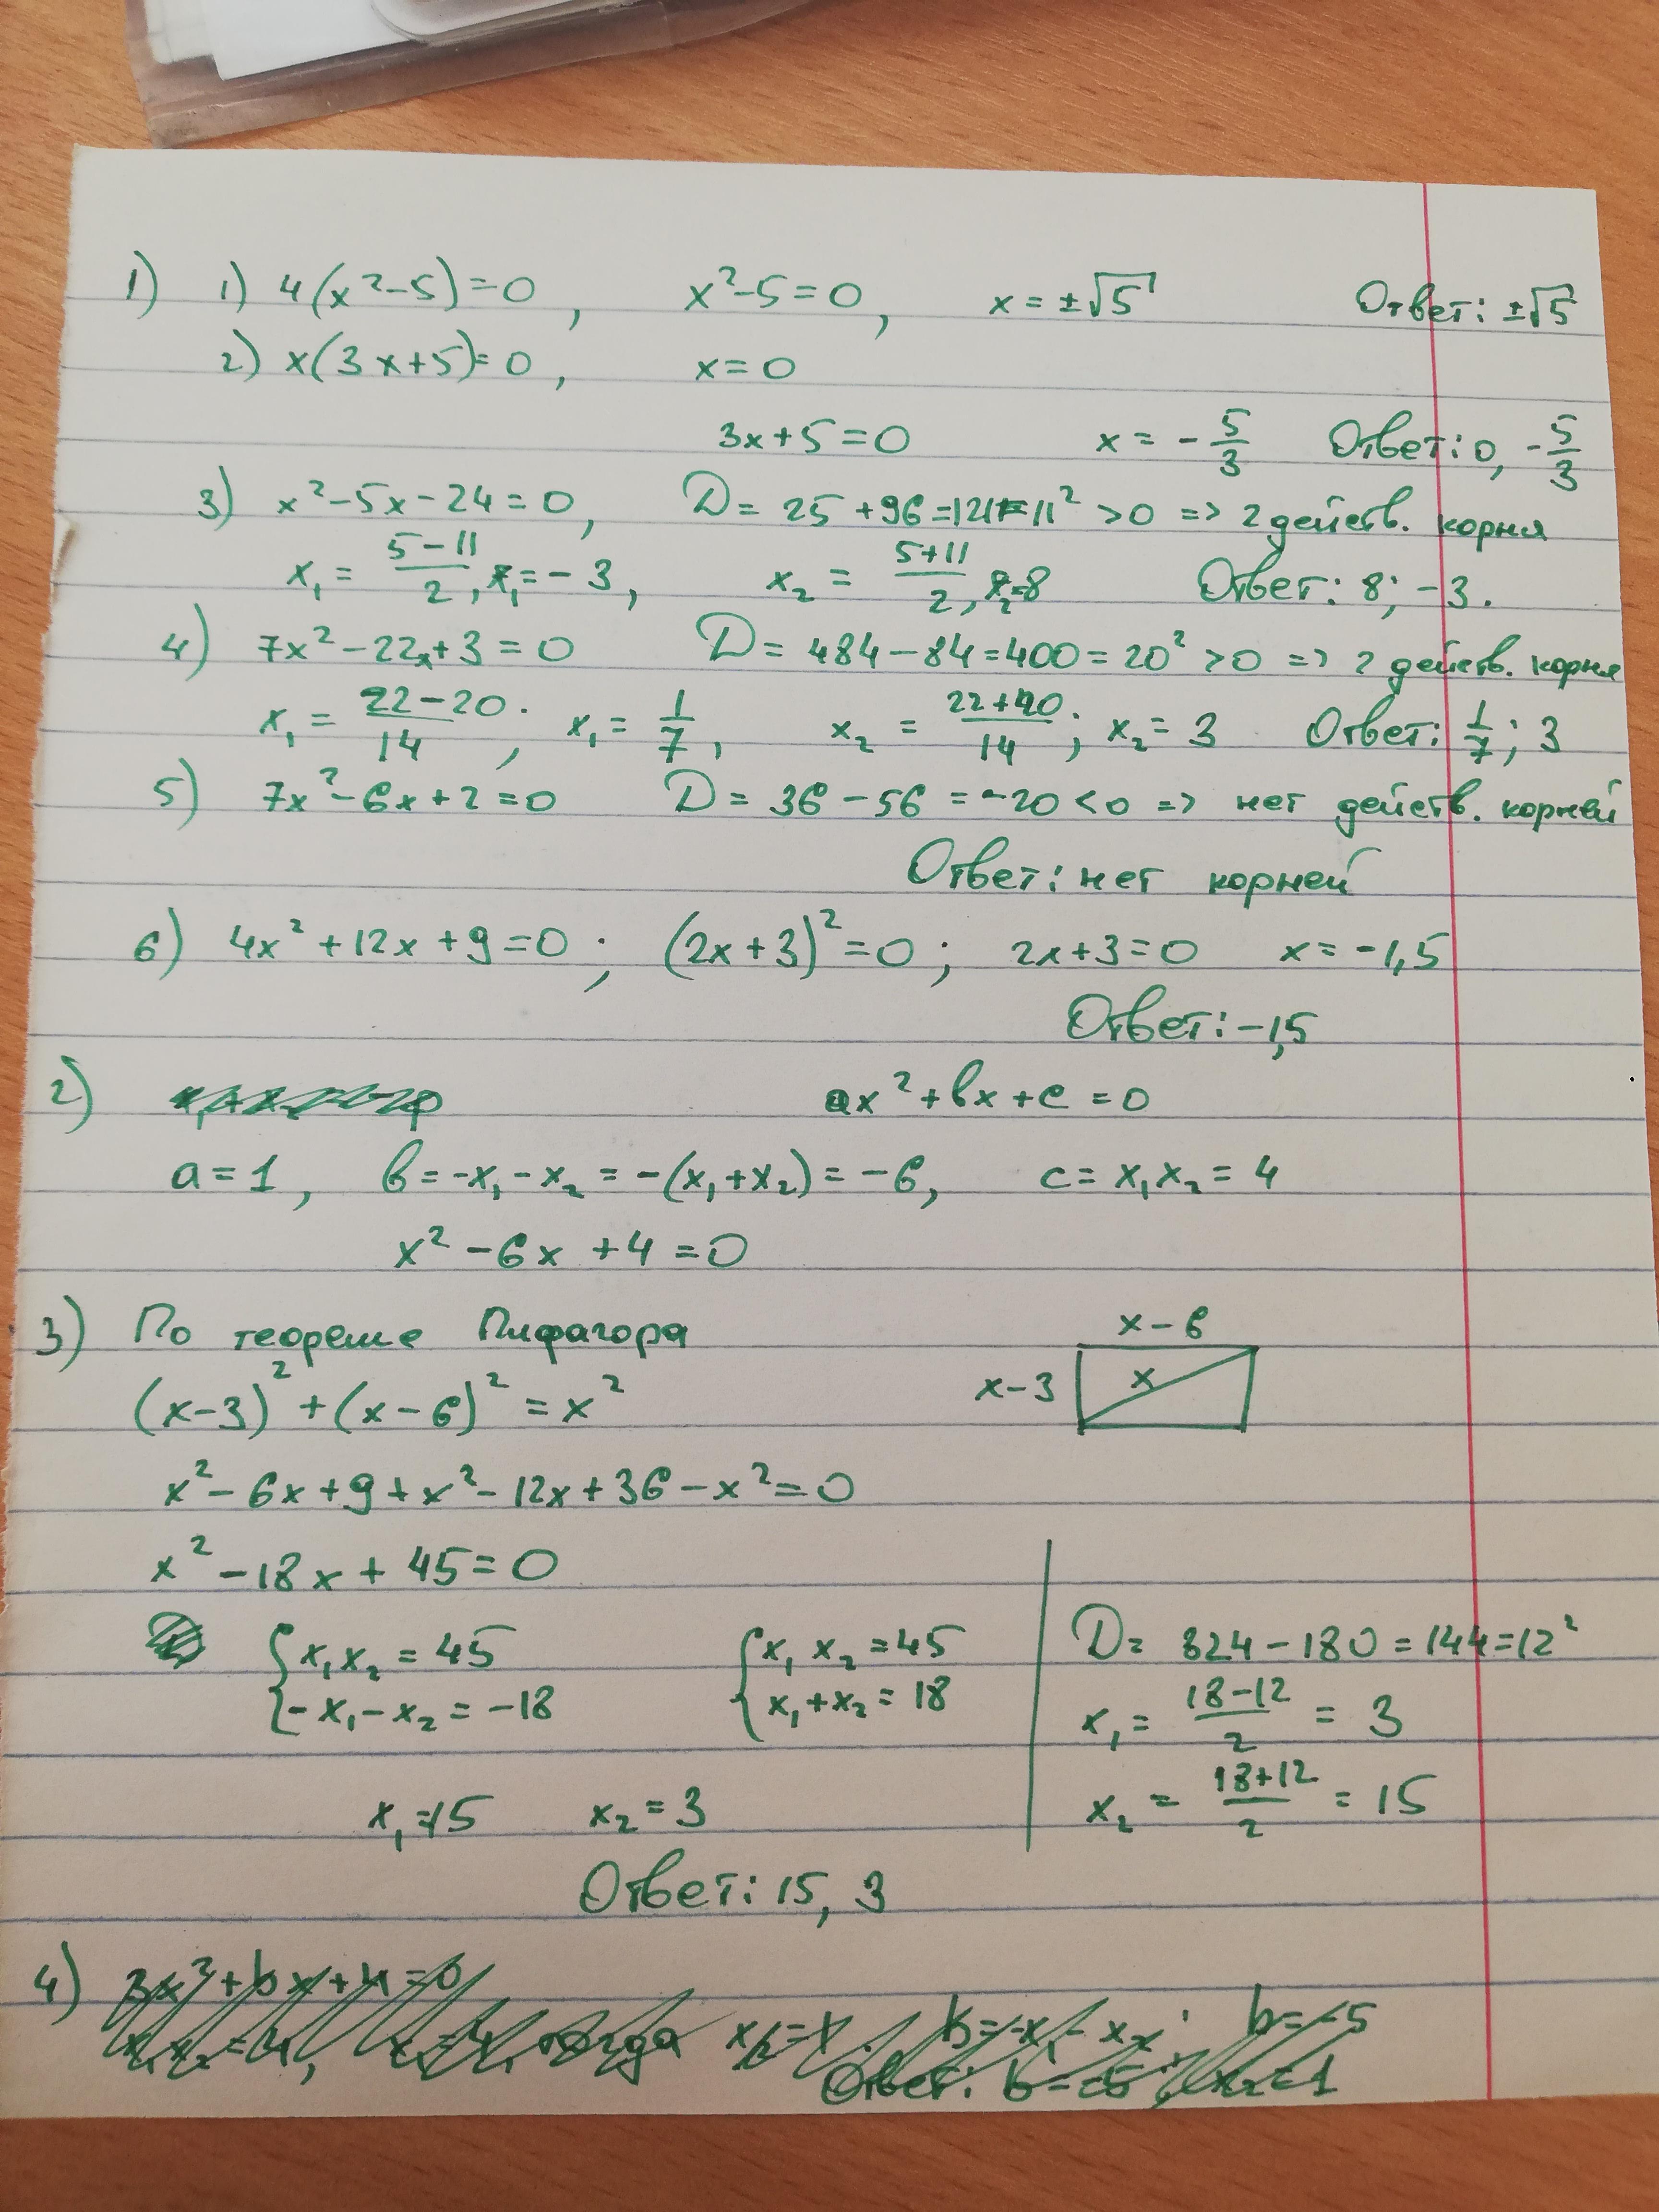 1) 1) 4(x²-5)=0, x²-5=0, x=±√5 Ответ: ±√5
2) x(3x+5)=0, x=0
3x+5=0 x=-5/3 Ответ: 0, -5/3
3) x²-5x-24=0, D=25+96=121=11²>0 => 2 действ. корня
x₁=(5-11)/2, x₁=-3, x₂=(5+11)/2, x₂=8 Ответ: 8; -3.
4) 7x²-22x+3=0 D=484-84=400=20²>0 => 2 действ. корня
x₁=(22-20)/14; x₁=1/7, x₂=(22+20)/14; x₂=3 Ответ: 1/7; 3
5) 7x²-6x+2=0 D=36-56=-20<0 => нет действ. корней
Ответ: нет корней
6) 4x²+12x+9=0; (2x+3)²=0; 2x+3=0 x=-1,5
Ответ: -1,5
2) ax²+bx+c=0
a=1, b=-x₁-x₂=-(x₁+x₂)=-6, c=x₁x₂=4
x²-6x+4=0
3) По теореме Пифагора
x-6
x-3 x
(x-3)²+(x-6)²=x²
x²-6x+9+x²-12x+36-x²=0
x²-18x+45=0
{x₁x₂=45 {x₁x₂=45
-x₁-x₂=-18 x₁+x₂=18
x₁=15 x₂=3
D=324-180=144=12²
x₁=(18-12)/2=3
x₂=(18+12)/2=15
Ответ: 15, 3
4)